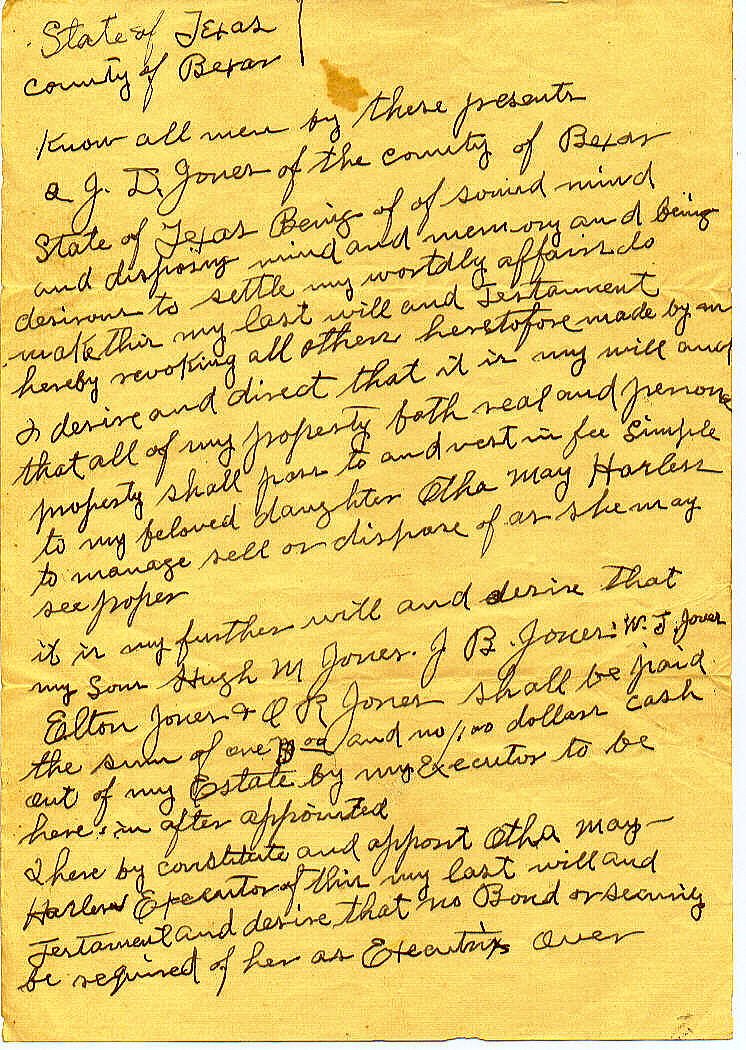 State of Texas
County of Bexar
Know all men by these presents
a J. D. Jones of the county of Bexar
State of Texas Being of of sound mind
and disposing mind and memory and being
desirous to settle my worldly affairs do
make this my last will and Testament
hereby revoking all others heretofore made by m
I desire and direct that it is my will and
that all of my property both real and persona
property shall pass to and vest in fee simple
to my beloved daughter Otha May Harless
to manage sell or dispose of as she may
see proper
it is my further will and desire that
my Sons Hugh M Jones. J B. Jones. W. J. Jones
Elton Jones & O R Jones shall be paid
the sum of one and no/100 dollars cash
out of my Estate by my Executor to be
here in after appointed
I here by constitute and appoint Otha May-
Harless Executor of this my last will and
Testament and desire that no Bond or security
be required of her as Executrix over